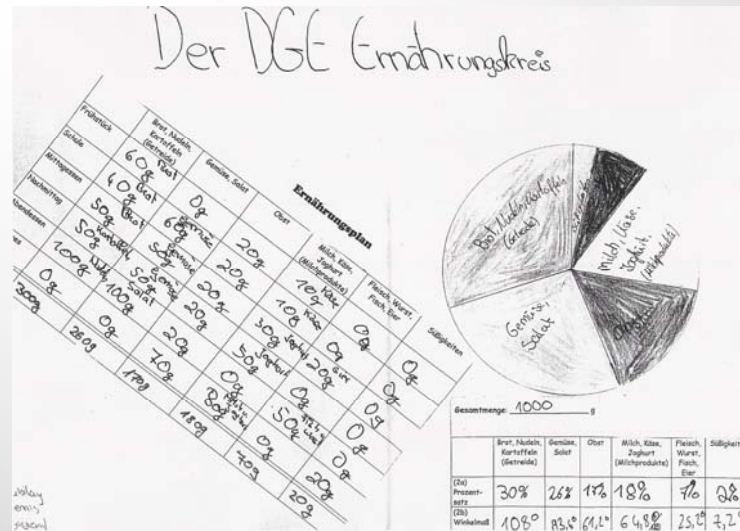 Der DGE Ernährungskreis
Ernährungsplan
Brot, Nudeln, Kartoffeln (Getreide)
Gemüse, Salat
Obst
Milch, Käse, Joghurt (Milchprodukte)
Fleisch, Wurst, Fisch, Eier
Süßigkeiten
Frühstück 60g Brot 0g 20g 10g Käse 0g 0g
Schule 40g Brot 60g Gemüse 20g 10g Käse 0g 0g
Mittagessen 50g 50g Gemüse 20g 30g Joghurt 20g 0g
Nachmittag 50g 50g 20g 50g Joghurt 0g 0g
100g Nudeln 100g Salat 20g 0g 50g 0g
0g 0g 70g 80g 0g 20g
300g 260g 170g 180g 70g 20g
Brot, Nudeln, Kartoffeln
(Getreide)
Milch, Käse,
Joghurt.
(Milchprodukte)
Gemüse,
Salat
Obst
Gesamtmenge: 1000 g
Brot, Nudeln, Kartoffeln (Getreide) Gemüse, Salat Obst Milch, Käse, Joghurt (Milchprodukte) Fleisch, Wurst, Fisch, Eier Süßigkeit
(2a) Prozentsatz 30% 26% 17% 18% 7% 2%
(2b) Winkelmaß 108° 93,6° 61,2° 64,8° 25,2° 7,2°